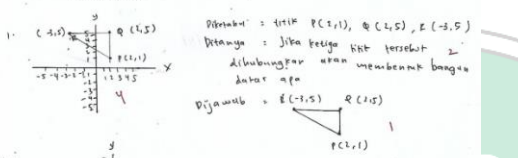 1.
y
(-3,5)
Q (2,5)
P(2,1)
x
-5 -4 -3 -2 -1
1 2 3 4 5
4
Diketahui : titik P(2,1), Q(2,5), R(-3,5)
Ditanya : Jika ketiga titik tersebut 2
dihubungkan akan membentuk bangun
datar apa
Dijawab : R(-3,5) Q(2,5)
1
P(2,1)
y